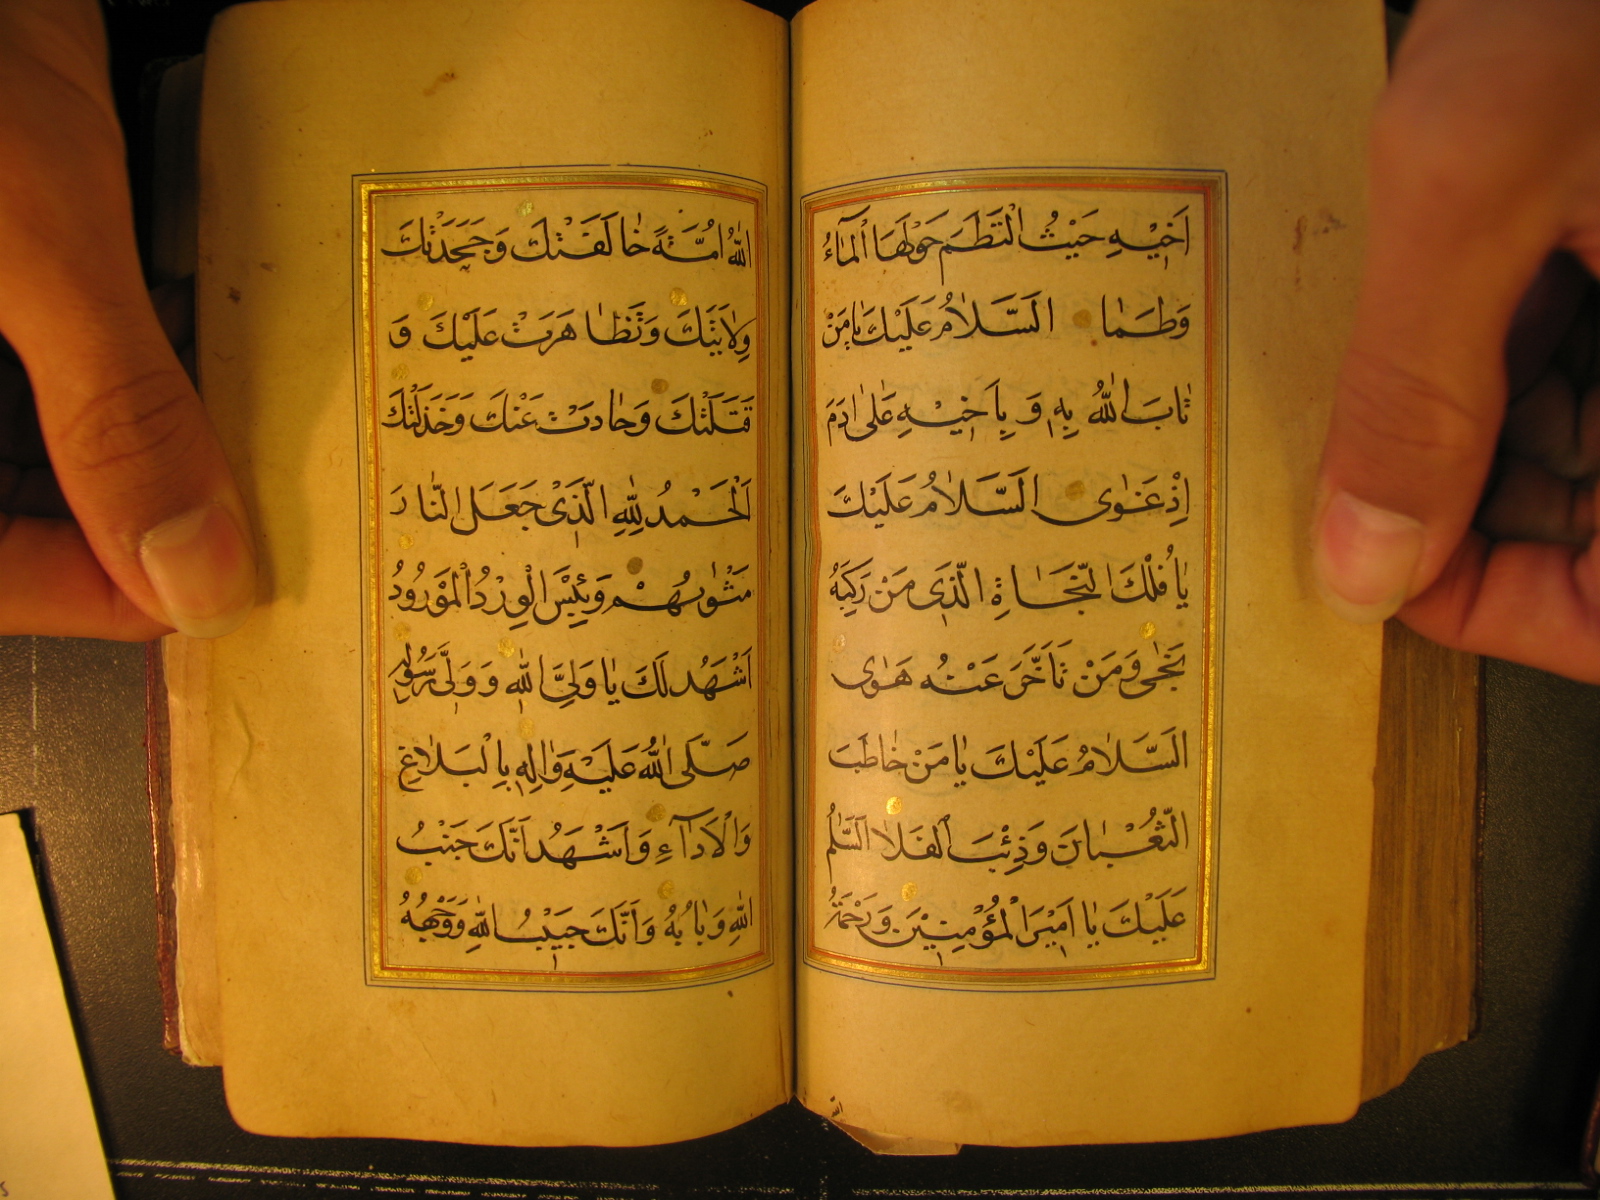 اَخِيْهِ حَيْثُ الْتَطَمَ حَوْلَهَا الْمَاءُ
وَطَمَا اَلسَّلَامُ عَلَيْكَ يَا مَنْ
تَابَ اللّٰهُ بِهِ وَ بِاَخِيْهِ عَلٰى ادَمَ
اِذْ غَوٰى اَلسَّلَامُ عَلَيْكَ
يَا فُلْكَ النَّجَاةِ الَّذِى مَنْ رَكِبَهُ
نَجٰى وَمَنْ تَاَخَّرَ عَنْهُ هَوٰى
اَلسَّلَامُ عَلَيْكَ يَا مَنْ خَاطَبَ
الثُّعْبَانَ وَذِئْبَ الْفَلَا السَّلَامُ
عَلَيْكَ يَا اَمِيْرَ الْمُؤْمِنِيْنَ وَرَحْمَةُ
اللّٰهُ اُمَّةً خَالَفَتْكَ وَجَحَدَتْكَ
وِلَايَتَكَ وَتَظَاهَرَتْ عَلَيْكَ وَ
قَتَلَتْكَ وَحَادَتْ عَنْكَ وَخَذَلَتْكَ
اَلْحَمْدُ لِلّٰهِ الَّذِىْ جَعَلَ النَّارَ
مَثْوٰىهُمْ وَبِئْسَ الْوِرْدُ الْمَوْرُودُ
اَشْهَدُ لَكَ يَا وَلِىَّ اللّٰهِ وَ وَلِىَّ رَسُولِهِ
صَلَّى اللّٰهُ عَلَيْهِ وَالِهِ بِالْبَلَاغِ
وَالْاَدَآءِ وَاَشْهَدُ اَنَّكَ جَنْبُ
اللّٰهِ وَبَابُهُ وَاَنَّكَ حَبِيْبُ اللّٰهِ وَوَجْهُهُ
الله